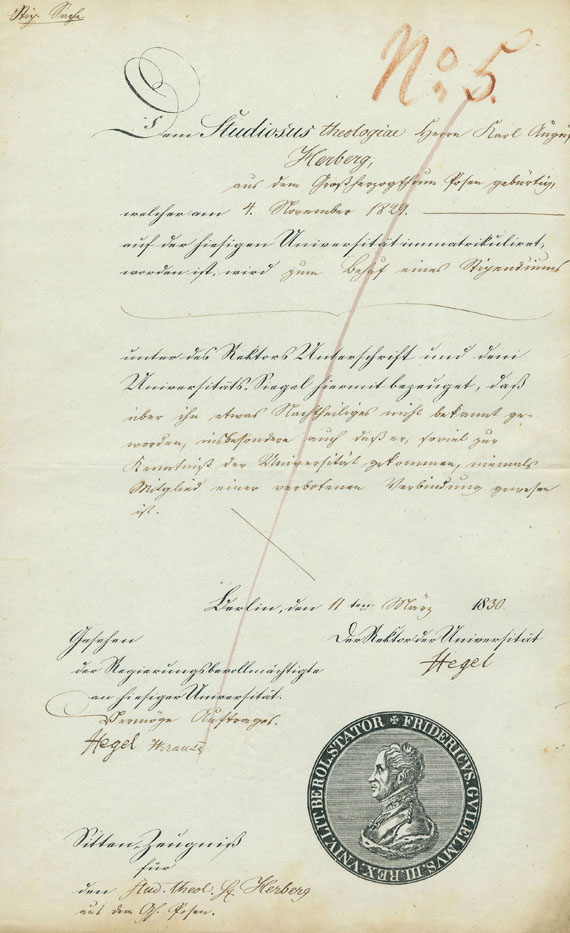 Stip. Sache
No. 5.
Dem Studiosus theologiae Herrn Karl August
Herberg,
aus dem Großherzogthum Posen gebürtig,
welcher am 4. November 1829.
auf der hiesigen Universität immatrikuliret,
worden ist, wird zum Behuf eines Stipendiums
unter des Rektors Unterschrift und dem
Universitäts-Siegel hiermit bezeuget, daß
über ihn etwas Nachtheiliges nicht bekannt ge-
worden, insbesondere auch daß er, soviel zur
Kenntniß der Universität gekommen, niemals
Mitglied einer verbotenen Verbindung gewesen
ist.
Berlin, den 11ten März 1830.
Gesehen
der Regierungsbevollmächtigte
an hiesiger Universität.
Vermöge Auftrages.
Hegel Krause
Der Rektor der Universität
Hegel
FRIDERICVS. GVILELMVS. III. REX. VNIV. LIT. BEROL. STATOR
Sitten-Zeugniß
für
den stud. theol. H. Herberg
aus dem Gh. Posen.